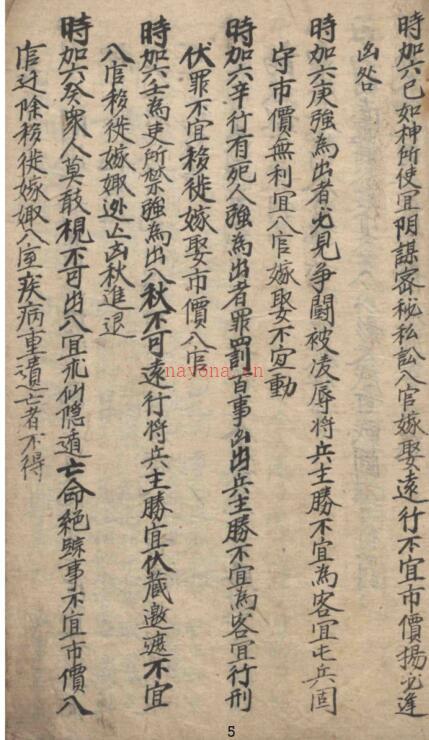 時加六己如神所使宜阴謀密秘私訟入官嫁娶遠行不宜市價揚必逢
凶咎
時加六庚強為出者必見争闘被凌辱将兵主勝不宜為客宜屯兵固
守市價無利宜入官嫁娶不宜動
時加六辛行有死人強為出者罪罰百事凶出兵主勝不宜為客宜行刑
伏罪不宜移徙嫁娶市價入官
時加六壬為吏所禁強為出入秋不可遠行将兵主勝宜伏蔵邀遮不宜
入官移徙嫁娶逃亡凶秋進退
時加六癸衆人莫敢視不可出入宜求仙隠遁亡命絕跡事不宜市價入
官迁除移徙嫁娶入室疾病重遺亡者不得
nayona.cn
5